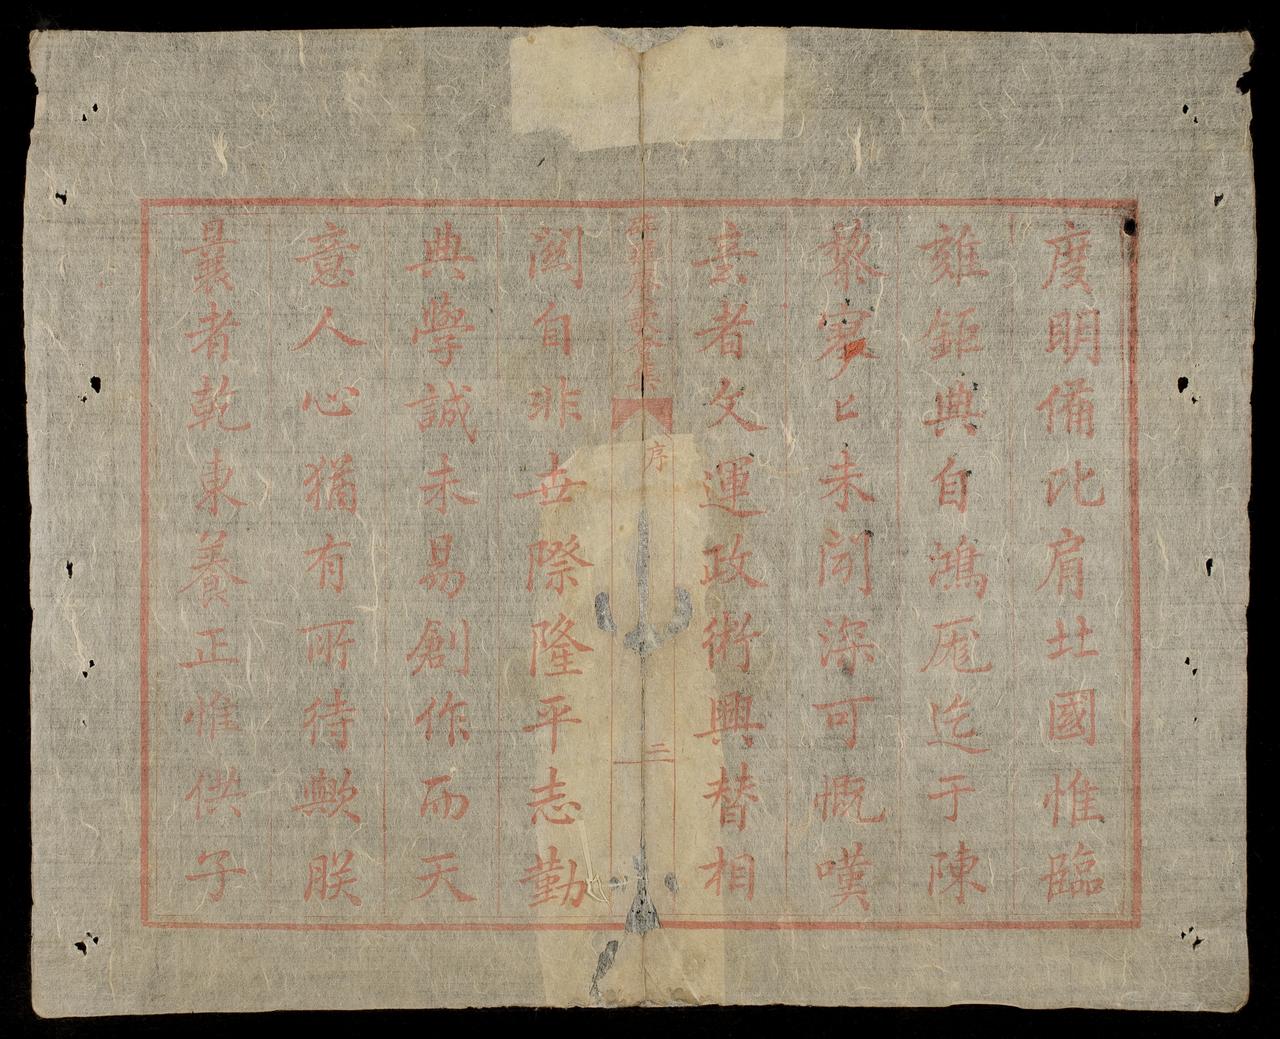 度明備比肩北國惟臨
雍鉅典自鴻厖迄于陳
黎寥匕未聞深可慨嘆
㙜者文運政術興替相
関自非世際隆平志勤
典學誠未易創作而天
意人心猶有所待歟朕
曩者乾東養正惟供子
序
二